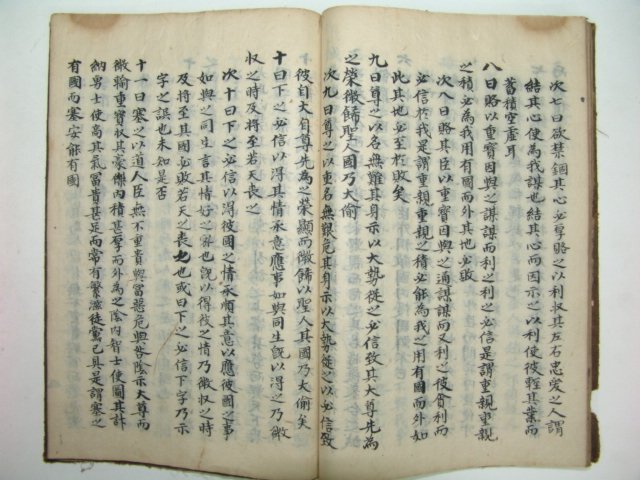 次七曰欲禁錮其心必厚賂之以利収其左右忠爱之人謂
結其心使為我謀也結其心而因示之以利使彼輕其業而
蓄積空虛耳
八曰賂以重宝因與之謀謀而利之利之必信是謂重親重親
之積必為我用有國而外其地必敗
次八曰賂其臣以重宝因與之通謀謀而又利之彼貪利而
必信於我是謂重親重親之積必能為我之用有國而外如
此其地必至於敗矣
九曰尊之以名無難其身示以大勢從之必信致其大尊先為
之榮微飾聖人國乃大偷
次九曰尊之以重名無艱危其身示以大勢從之以必信致
彼自大自尊先為之榮顯而微飾以聖人其國乃大偷矣
十曰下之必信以得其情承意應事如與同生旣以得之乃微
収之时及將至若天丧之
次十曰下之必信以得彼國之情承順其意以應彼國之事
如與之同生言其情好之深也旣以得彼之情乃微収之時
及將至其國必敗若天之丧之也或曰下之必信下字乃示
字之誤也未知是否
十一曰塞之以道人臣無不重貴與富惡危與咎陰示大尊而
微輸重宝収其豪傑内積甚厚而外為乏陰内智士使圖其計
納勇士使高其氣富貴甚足而常有繁滋徒黨已具是謂塞之
有國而塞安能有國